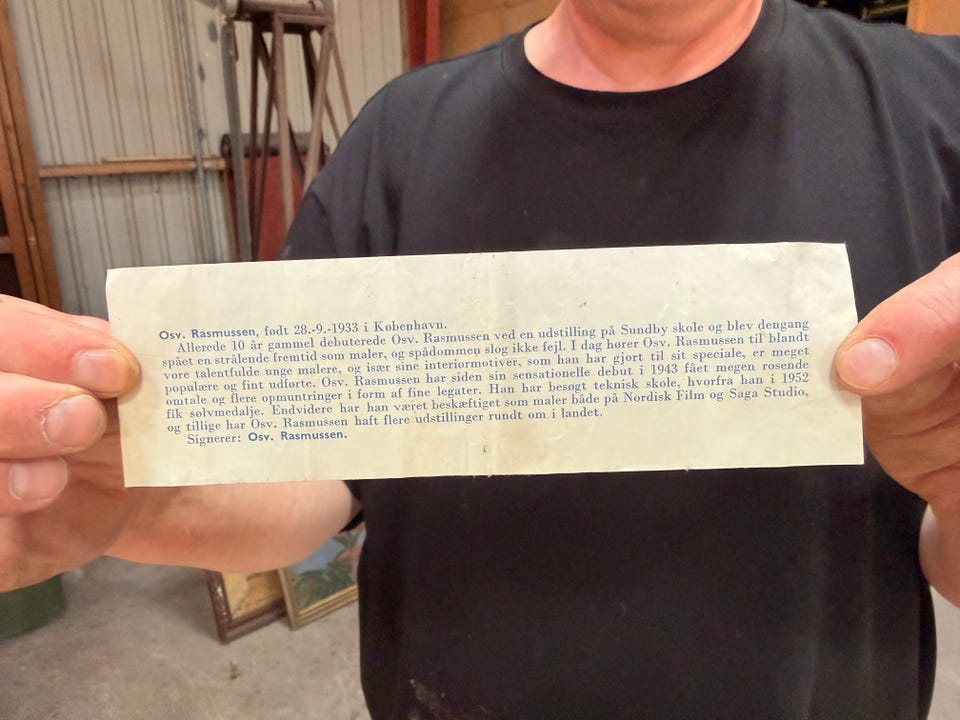 Osv. Rasmussen, født 28.-9.-1933 i København.
Allerede 10 år gammel debuterede Osv. Rasmussen ved en udstilling på Sundby skole og blev dengang
spået en strålende fremtid som maler, og spådommen slog ikke fejl. I dag hører Osv. Rasmussen til blandt
vore talentfulde unge malere, og især sine interiormotiver, som han har gjort til sit speciale, er meget
populære og fint udførte. Osv. Rasmussen har siden sin sensationelle debut i 1943 fået megen rosende
omtale og flere opmuntringer i form af fine legater. Han har besøgt teknisk skole, hvorfra han i 1952
fik sølvmedalje. Endvidere har han været beskæftiget som maler både på Nordisk Film og Saga Studio,
og tillige har Osv. Rasmussen haft flere udstillinger rundt om i landet.
Signerer: Osv. Rasmussen.